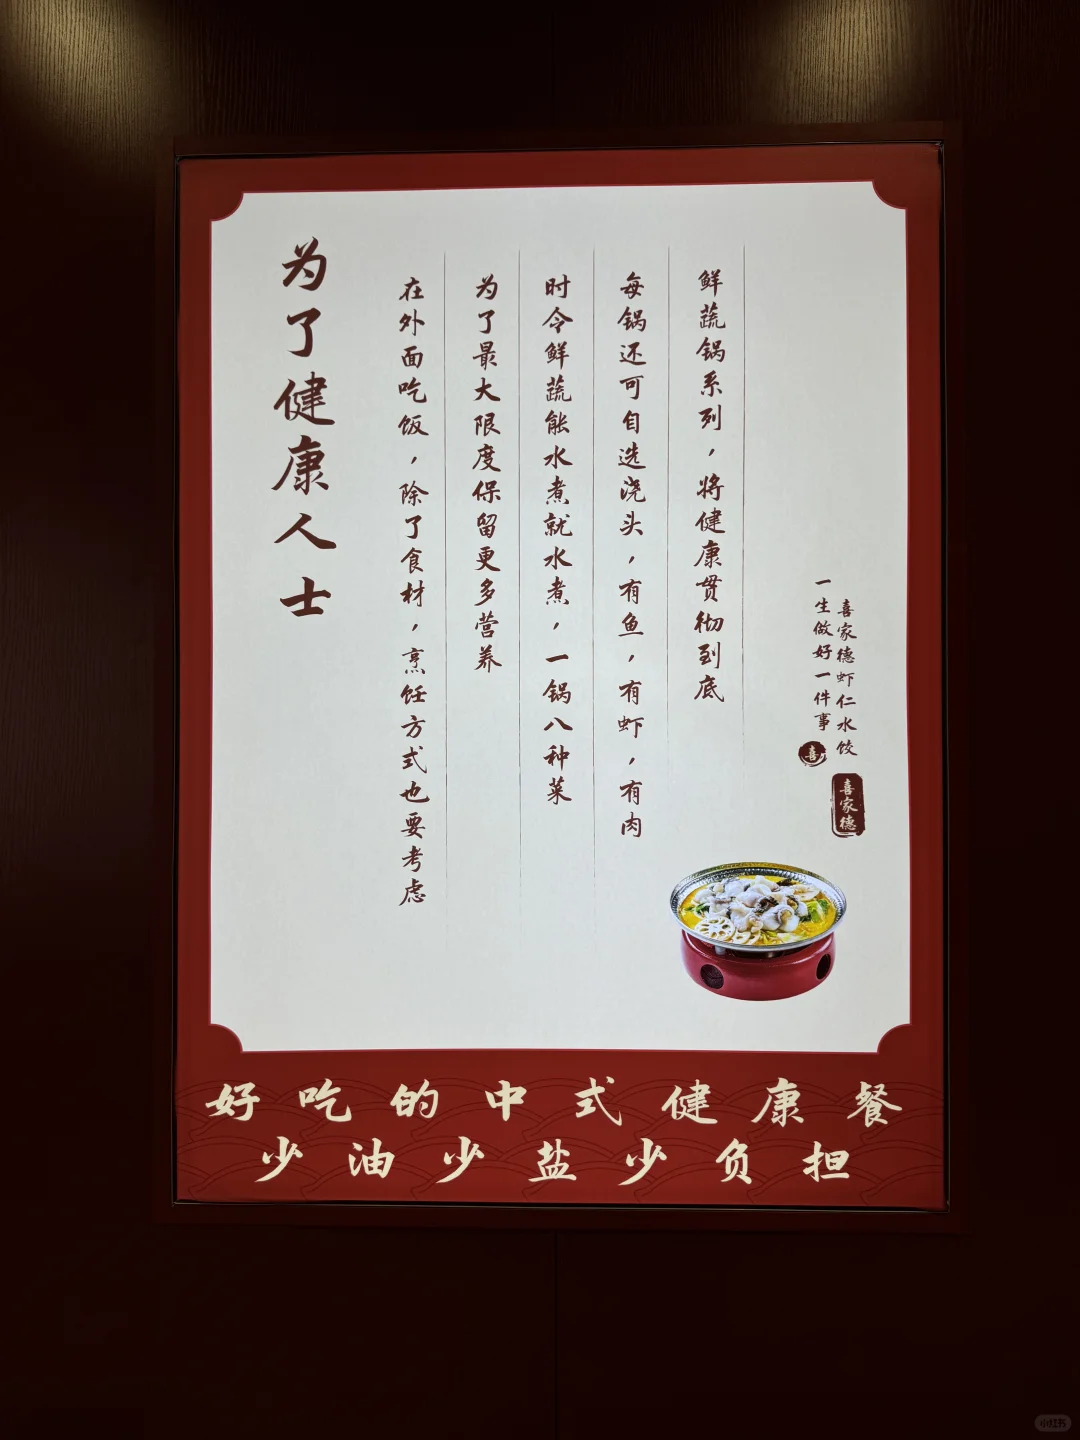 为了健康人士
在外面吃饭，除了食材，烹饪方式也要考虑
为了最大限度保留更多营养
时令鲜蔬能水煮就水煮，一锅八种菜
每锅还可自选浇头，有鱼，有虾，有肉
鲜蔬锅系列，将健康贯彻到底
一生做好一件事
喜家德虾仁水饺
喜
喜家德
好吃的中式健康餐
少油少盐少负担
小红书